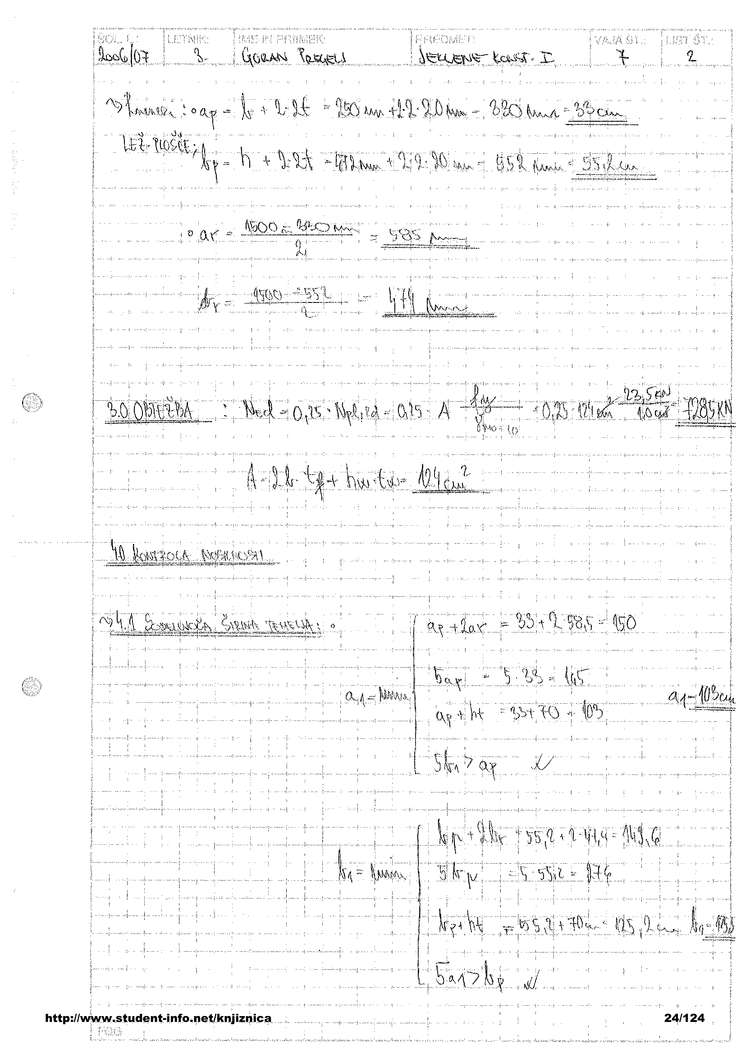 ŠOL. L.: LETNIK: IME IN PRIIMEK: PREDMET: VAJA ŠT.: LIST ŠT.:
2006/07 3. GORAN PREGELJ JEKLENE KONST. I 7 2
ap = b + 2·2t = 250 mm + 2·2·20 mm = 330 mm = 33 cm
LEŽ. PLOŠČE:
bp = h + 2·2t = 472 mm + 2·2·20 mm = 552 mm = 55,2 cm
ar = (1500 - 330 mm)/2 = 585 mm
br = (1500 - 552)/2 = 474 mm
3.0 OBTEŽBA : Ned = 0,25 · Npl,rd = 0,25 · A fy/γM0=1.0 = 0,25 · 124 cm² · 23,5 kN/1.0 cm² = 728,5 KN
A = 2·b·tf + hw·tw = 124 cm²
4.0 KONTROLA NOSILNOSTI
4.1 SODELUJOČA ŠIRINA TEMELJA:
ap + 2ar = 33 + 2·58,5 = 150
5ap = 5·33 = 165
a1 = min a1 = 103 cm
ap + ht = 33 + 70 = 103
5b1 > ap ✓
bp + 2br = 55,2 + 2·47,4 = 149,6
b1 = min 5bp = 5·55,2 = 276
bp + ht = 55,2 + 70 cm = 125,2 cm
5a1 > bp ✓
http://www.student-info.net/knjiznica 24/124
FGG